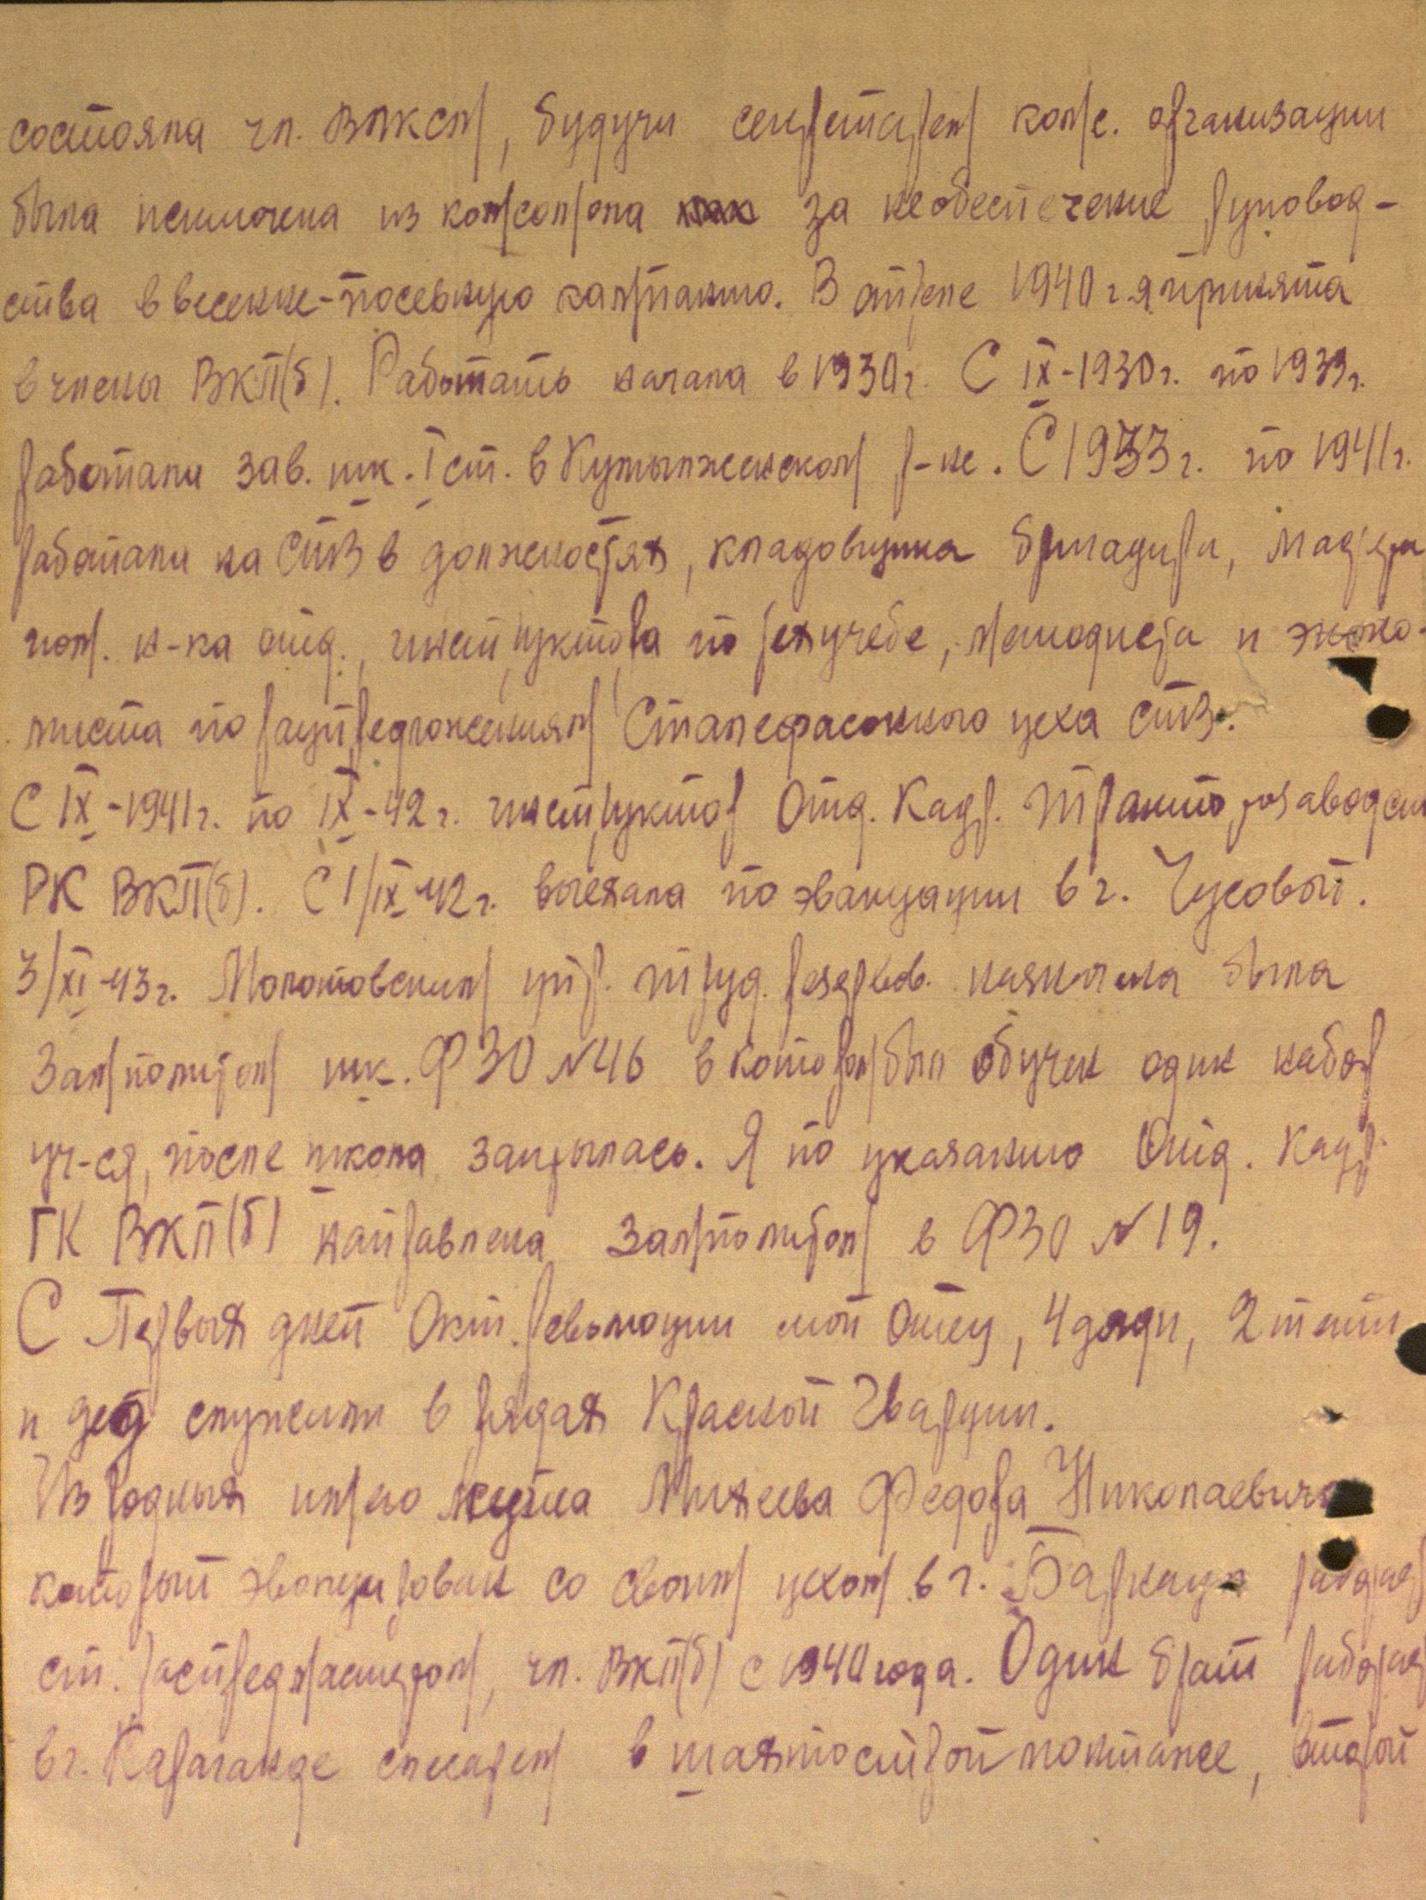 состояла чл. ВЛКСМ, будучи секретарем комс. организации
была исключена из комсомола за необеспечение руковод-
ства в весенне-посевную кампанию. В апреле 1940 г. я принята
в члены ВКП(б). Работать начала в 1930 г. С IX-1930 г. по 1933 г.
работала зав. шк. I ст. в Кумылженском р-не. С 1933 г. по 1941 г.
работала на СТЗ в должностях, кладовщика бригадира, мастера
пом. н-ка отд., инструктора по техучебе, методиста и эконо-
миста по рацпредложениям Сталефасонного цеха СТЗ.
С IX-1941 г. по IX-42 г. инструктор Отд. Кадр. Тракторозаводск
РК ВКП(б). С 1/IX 42 г. выехала по эвакуации в г. Чусовой.
3/XI-43 г. Молотовским упр. труд. резервов. назначена была
Замполитом шк. ФЗО №46 в котором был обучен один набор
уч-ся, после школа закрылась. Я по указанию Отд. Кадр
ГК ВКП(б) направлена замполитом в ФЗО №19.
С Первых дней Окт. революции мой Отец, 4 дяди, 2 тети
и дед служили в рядах Красной Гвардии.
Из родных имею мужа Михеева Федора Николаевича
который эвакуирован со своим цехом в г. Барнаул работает
ст. распредмастером, чл. ВКП(б) с 1940 года. Один брат работает
в г. Караганде слесарем в шахтострой монтаже, второй